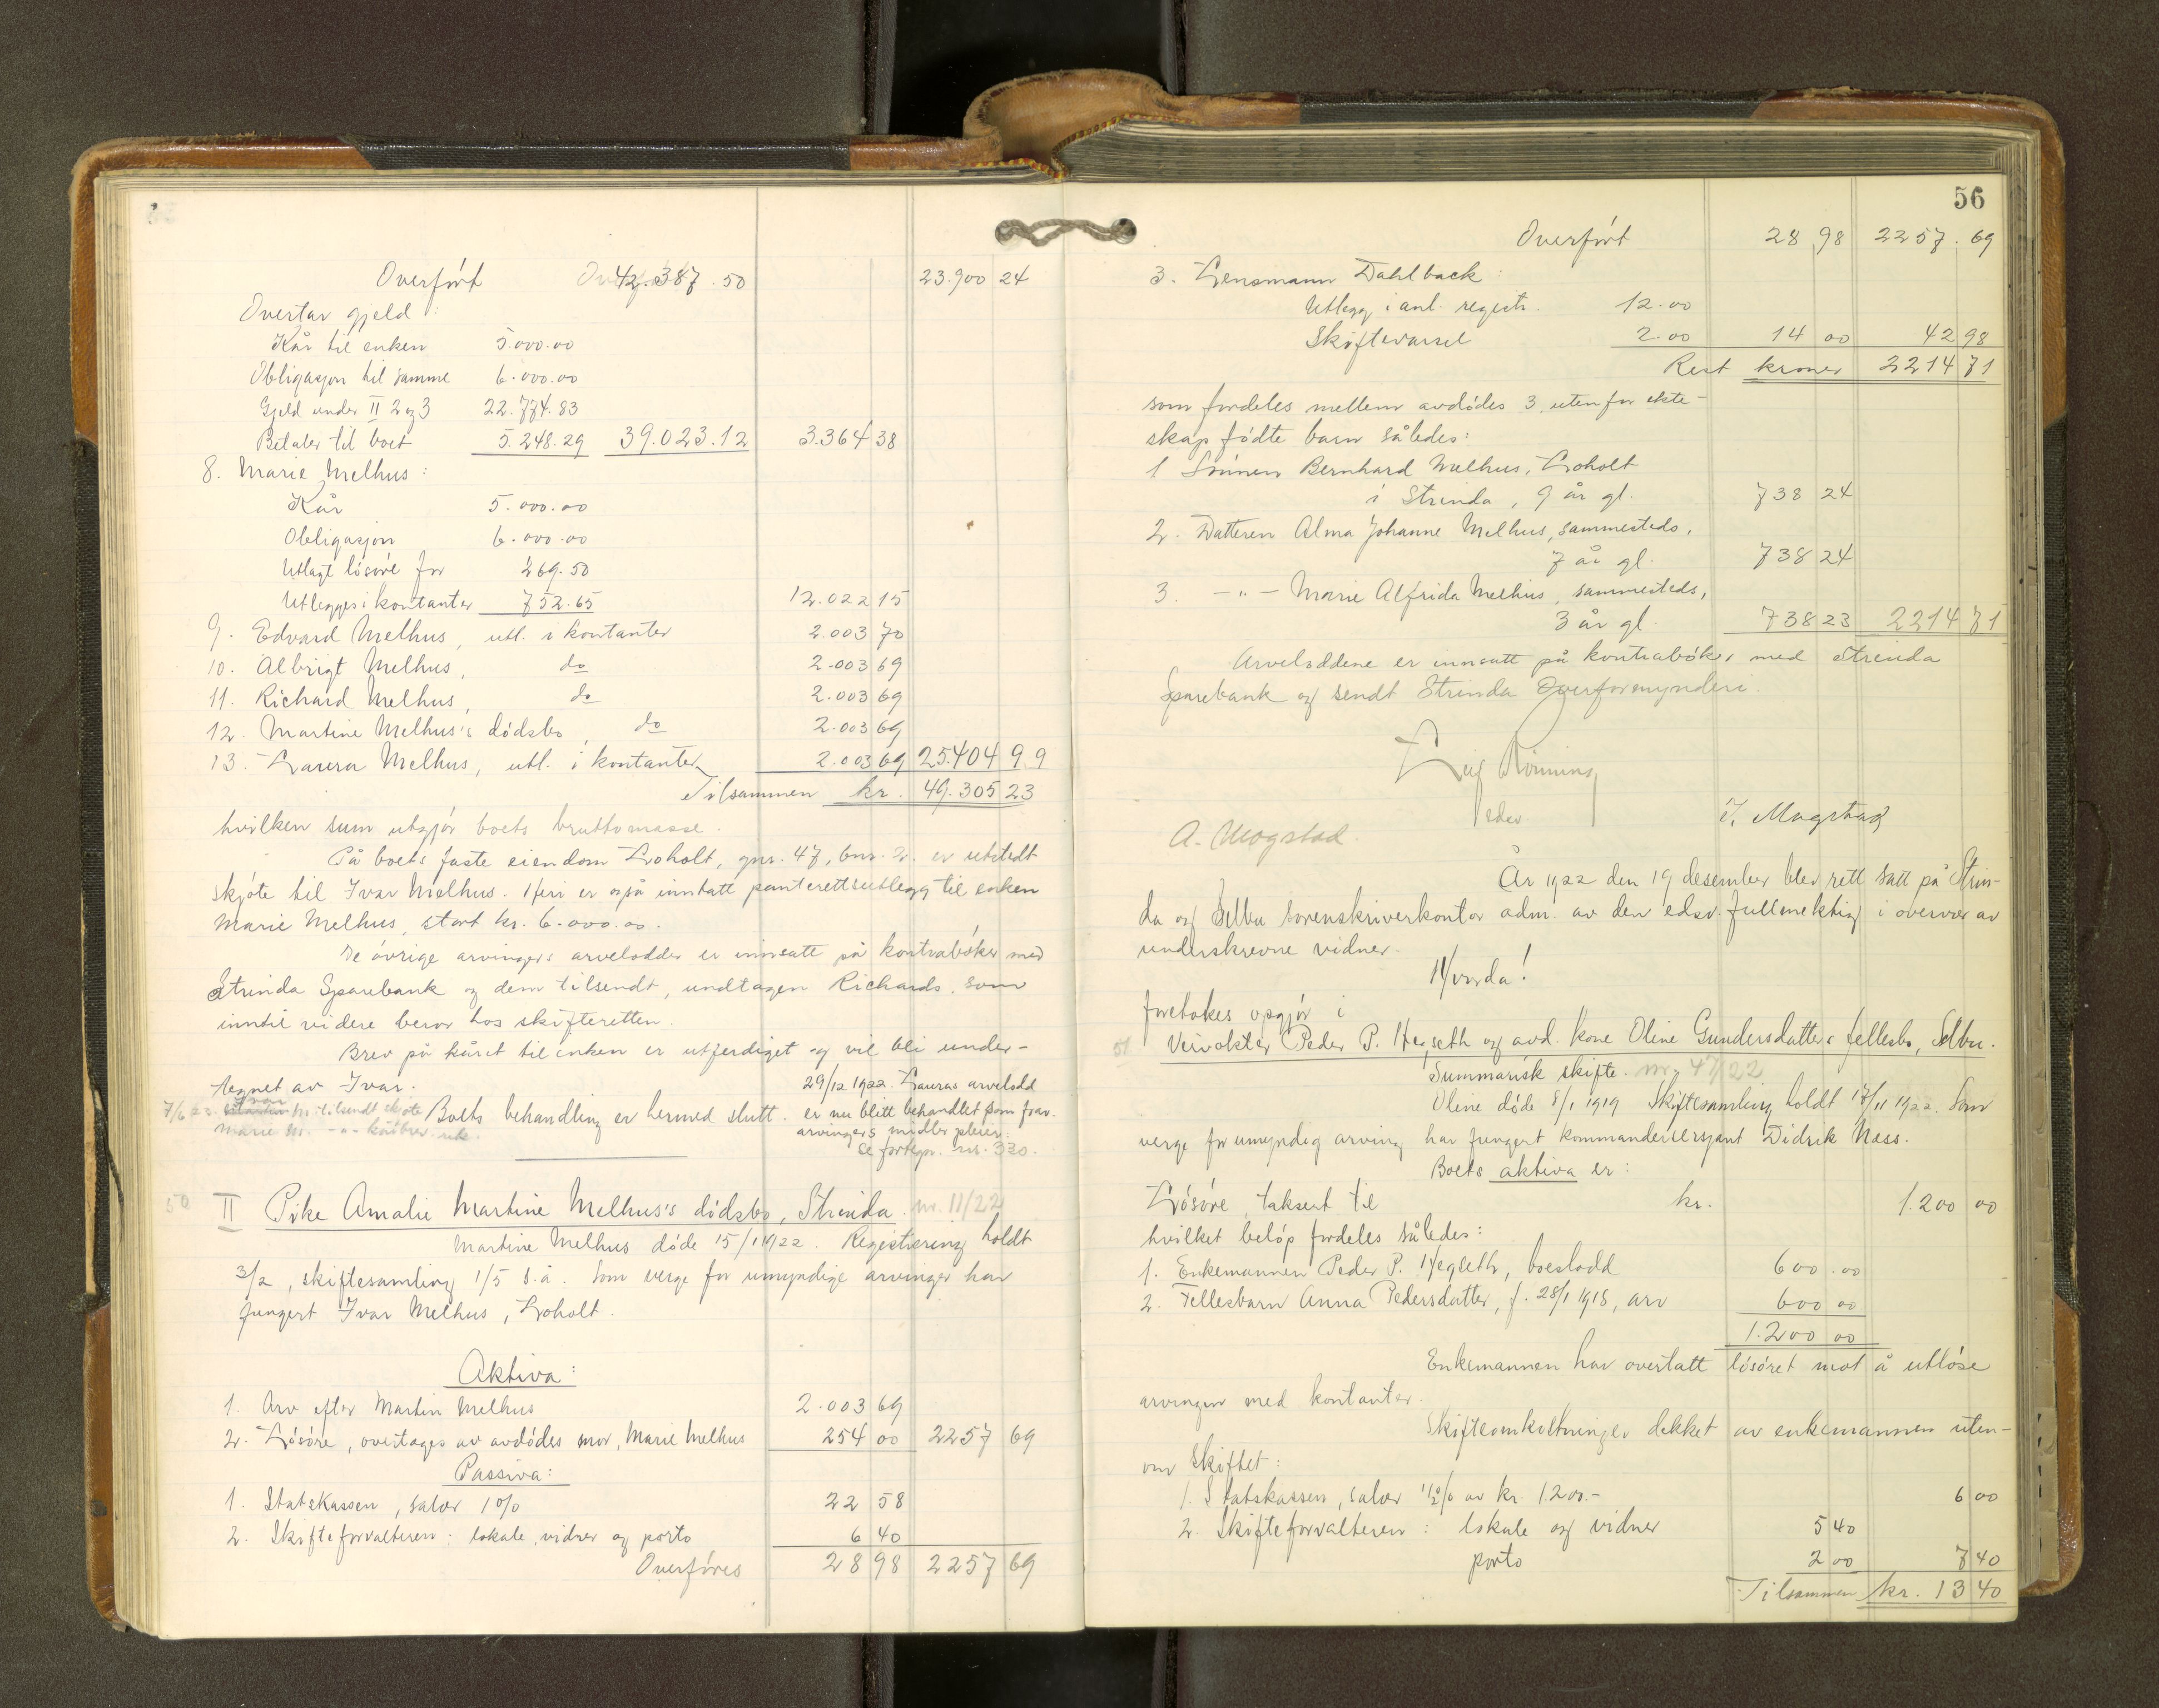 Overført 42.387.50 23.900 24
Overtar gjeld:
Kår til enken 5.000.00
Obligasjon til samme 6.000.00
Gjeld under II 2 og 3 22.774.83
Betaler til boet 5.248.29 39.023.12 3.364 38
8. Marie Melhus:
Kår 5.000.00
Obligasjon 6.000.00
Utlagt løsøre for 269.50
Utlegges i kontanter 752.65 12.022 15
9. Edvard Melhus, utl. i kontanter 2.003 70
10. Albrigt Melhus, do 2.003 69
11. Richard Melhus, do 2.003 69
12. Martine Melhus's dødsbo, do 2.003 69
13. Laura Melhus, utl. i kontanter 2.003 69 25.404 99
Tilsammen kr. 49.305 23
hvilken sum utgjør boets bruttomasse.
På boets faste eiendom Loholt, gnr. 47, bnr. 2. er utstedt
skjøte til Ivar Melhus. Heri er også inntatt panterettsutlegg til enken
Marie Melhus, stort kr. 6.000.00.
De øvrige arvingers arvelodder er innsatt på kontrabøker med
Strinda Sparebank og dem tilsendt, undtagen Richards, som
inntil videre beror hos skifteretten.
Brev på kåret til enken er utferdiget og vil bli under-
tegnet av Ivar.
29/12 1922. Lauras arvelodd
7/6 23. Ivar M. tilsendt skjøte Boets behandling er hermed slutt. er nu blitt behandlet som frav.
Marie M. -"- kårbrev rek. arvingers midler pleier.
Se fortegn. nr. 330.
50 II Pike Amalie Martine Melhus's dødsbo, Strinda. nr. 11/22
Martine Melhus døde 15/1 1922. Registrering holdt
3/2, skiftesamling 1/5 s.å. Som verge for umyndige arvinger har
fungert Ivar Melhus, Loholt.
Aktiva:
1. Arv efter Martin Melhus 2.003 69
2. Løsøre, overtages av avdødes mor, Marie Melhus 254 00 2257 69
Passiva:
1. Statskassen, salær 1% 22 58
2. Skifteforvalteren: lokale, vidner og porto 6 40
Overføres 28 98 2257 69
56
Overført 28 98 2257.69
3. Lensmann Dahlback:
Utlegg i anl. registr. 12.00
Skiftevarsel 2.00 14 00 42 98
Rest kroner 2214 71
som fordeles mellem avdødes 3 uten for ekte-
skap fødte barn således:
1 Sønnen Bernhard Melhus, Loholt
i Strinda, 9 år gl. 738 24
2. Datteren Alma Johanne Melhus, sammesteds,
7 år gl. 738 24
3. -"- Marie Alfrida Melhus, sammesteds,
3 år gl. 738 23 2214 71
Arveloddene er innsatt på kontrabøker med Strinda
Sparebank og sendt Strinda Overformynderi.
Leif Rønning
edsv
A. Mogstad. I. Mogstad
År 1922 den 19 desember blev rett satt på Strin-
da og Selbu sorenskriverkontor adm. av den edsv. fullmektig i overvær av
underskrevne vidner.
Hvorda!
foretokes opgjør i
51 Veivokter Peder P. Hegseth og avd. kone Oline Gundersdatters fellesbo, Selbu.
Summarisk skifte. nr. 47/22
Oline døde 8/1 1919 Skiftesamling holdt 17/11 1922. Som
verge for umyndig arving har fungert kommandersersjant Didrik Næss.
Boets aktiva er:
Løsøre, taksert til kr. 1.200 00
hvilket beløp fordeles således:
1. Enkemannen Peder P. Hegseth, boeslodd 600.00
2. Fellesbarn Anna Pedersdatter, f. 28/1 1918, arv 600 00
1.200 00
Enkemannen har overtatt løsøret mot å utløse
arvingen med kontanter.
Skifteomkostninger dekket av enkemannen uten-
om skiftet:
1. Statskassen, salær 1/2% av kr. 1.200.- 6 00
2. Skifteforvalteren: lokale og vidner 5 40
porto 2 00 7 40
Tilsammen kr. 13 40